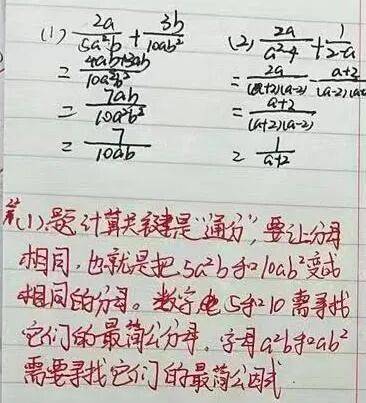 (1) 2a/5a²b + 3b/10ab² (2) 2a/a²-4 + 1/2-a
= 4ab+3ab/10a²b² = 2a/(a+2)(a-2) - a+2/(a-2)(a+2)
= 7ab/10a²b² = a+2/(a+2)(a-2)
= 7/10ab = 1/a+2
第(1)题计算关键是“通分”,要让分母
相同,也就是把5a²b和10ab²变成
相同的分母。数字 5和10需寻找
它们的最简公分母,字母a²b和ab²
需要寻找它们的最简公因式.